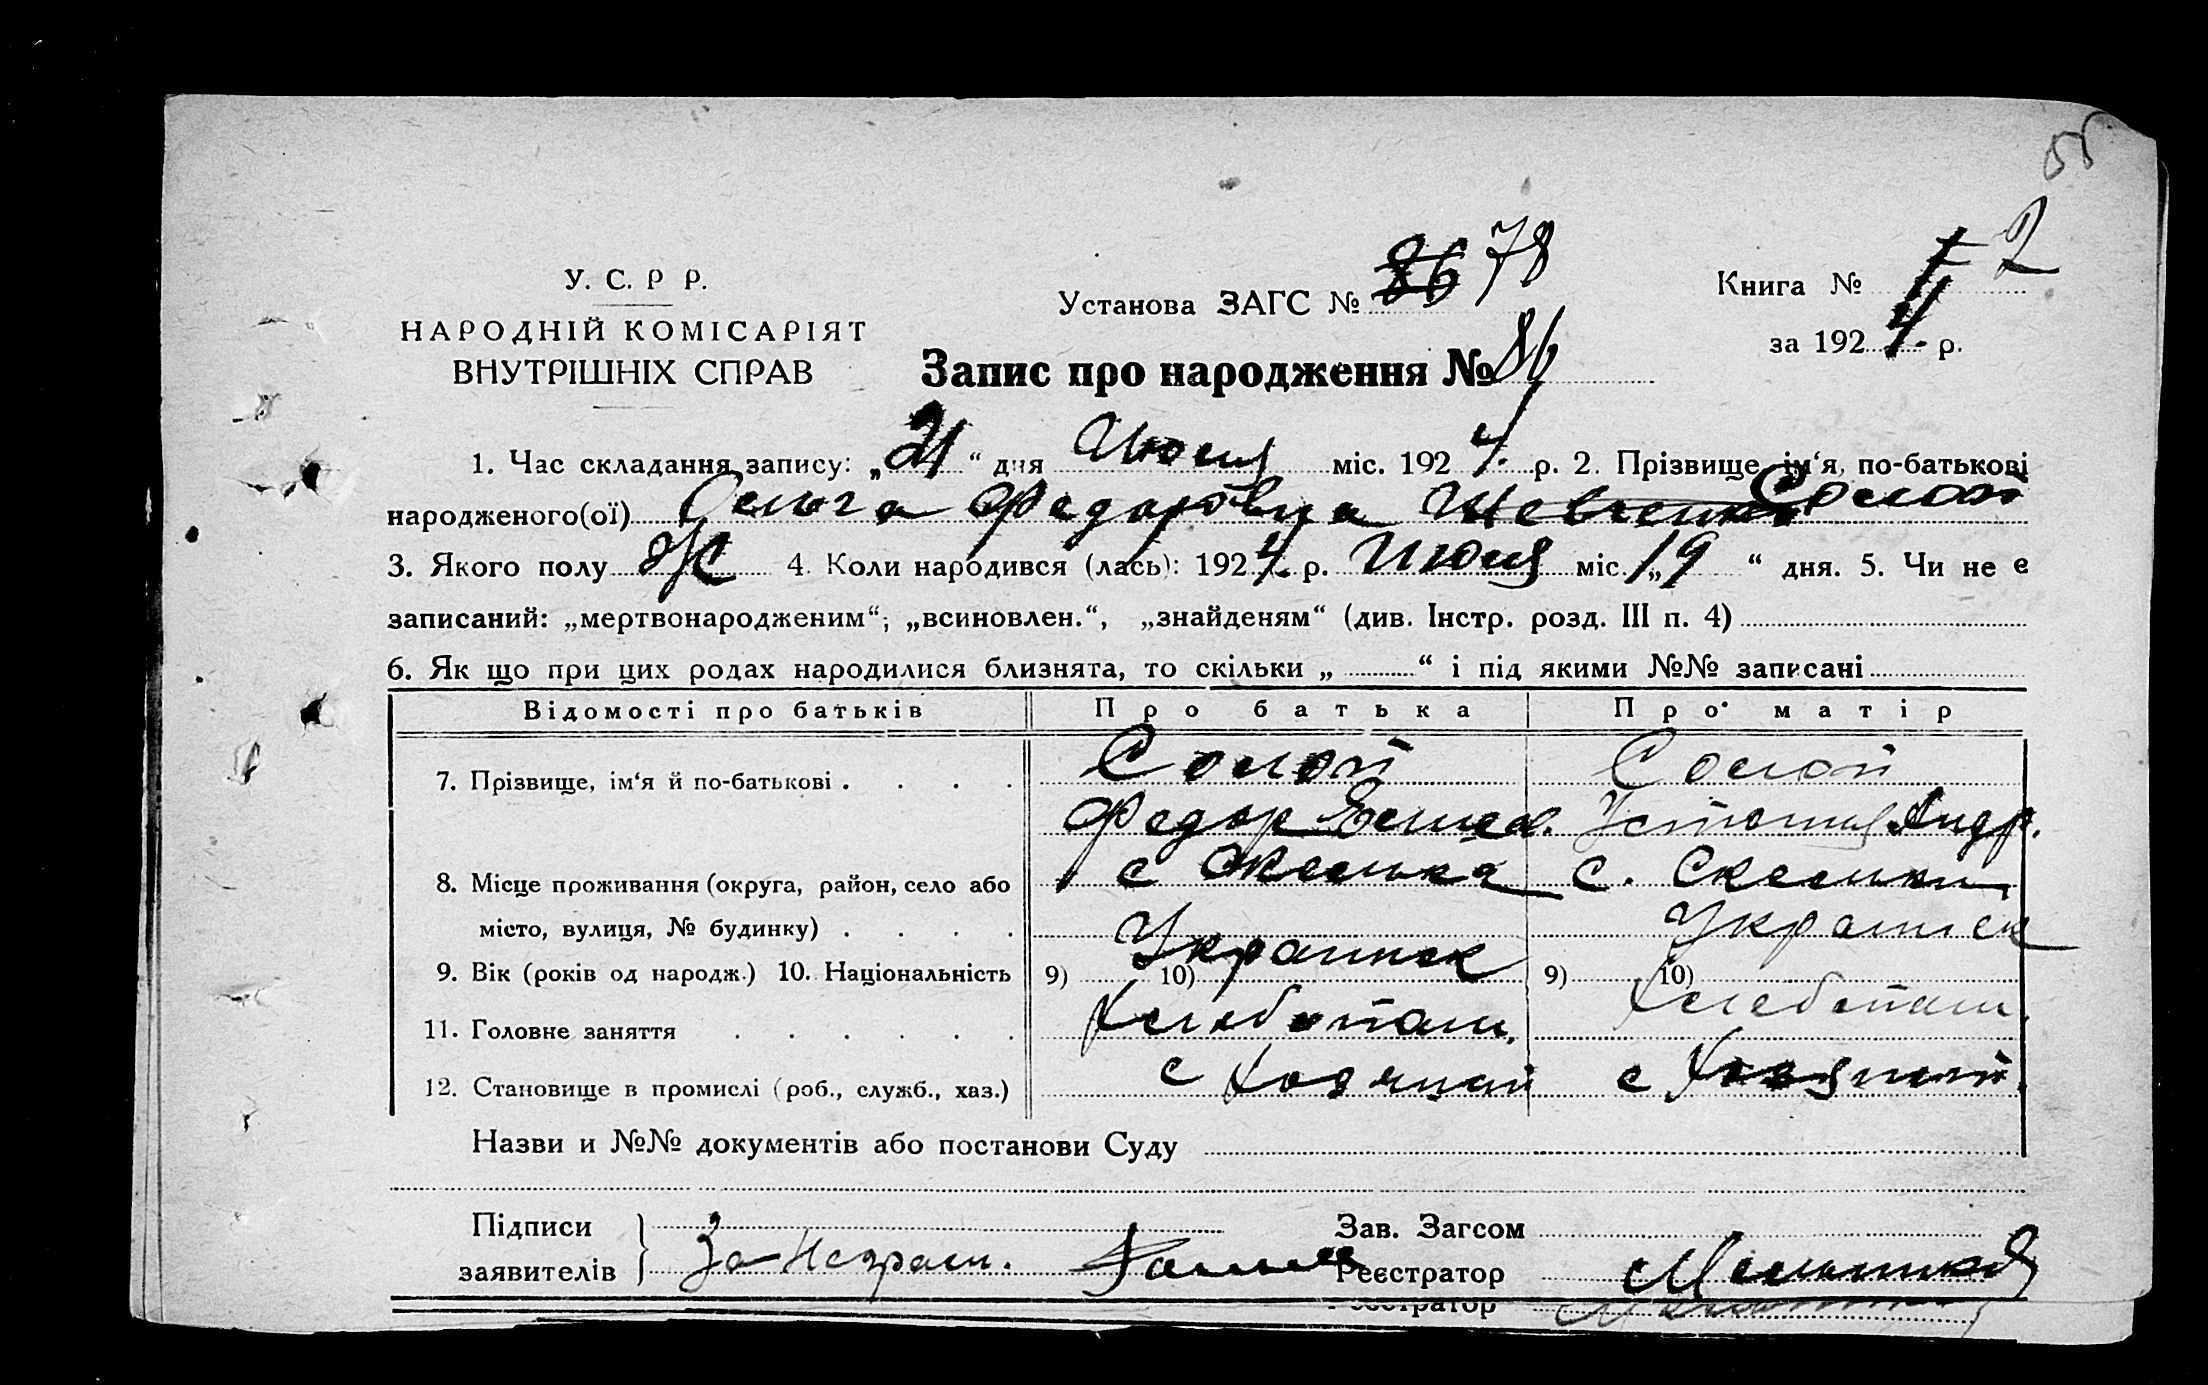 55
У. С. Р Р.
НАРОДНІЙ КОМІСАРІЯТ
ВНУТРІШНІХ СПРАВ
Установа ЗАГС № 86 78
Книга № 1 2
за 192 4 р.
Запис про народження № 86
1. Час складання запису: „ 21 “ дня Июля міс. 192 4. р. 2. Прізвище, ім‘я, по-батькові
народженого(ої) Ольга Федоровна Шевченко Солоп
3. Якого полу Ж 4. Коли народився (лась): 192 4. р. Июля міс. „ 19 “ дня. 5. Чи не є
записаний: „мертвонародженим“; „всиновлен.“, „знайденям“ (див. Інстр. розд. III п. 4)
6. Як що при цих родах народилися близнята, то скільки „ “ і під якими №№ записані
Відомості про батьків Про батька Про матір
7. Прізвище, ім‘я й по-батькові . . . . Солоп Солоп
Федор Устиния Андр.
8. Місце проживання (округа, район, село або с с.
місто, вулиця, № будинку) . . . .
Украинск Украинск
9. Вік (років од народж.) 10. Національність 9) 10) 9) 10)
11. Головне заняття . . . . . . Хлебопаш. Хлебопаш.
12. Становище в промислі (роб., служб., хаз.) с Хозяцой с
Назви и №№ документів або постанови Суду
Підписи
заявителів } За Неграм.
Зав. Загсом
Реєстратор
Реєстратор